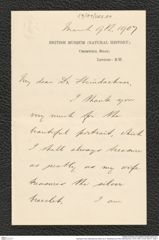 March 19th. 1907
BRITISH MUSEUM (NATURAL HISTORY),
CROMWELL ROAD,
LONDON: S.W.
My dear Dr Steindachner,
I thank you
very much for the
beautiful portrait, which
I shall always treasure
as greatly as my wife
treasures the silver
bracelet. I am